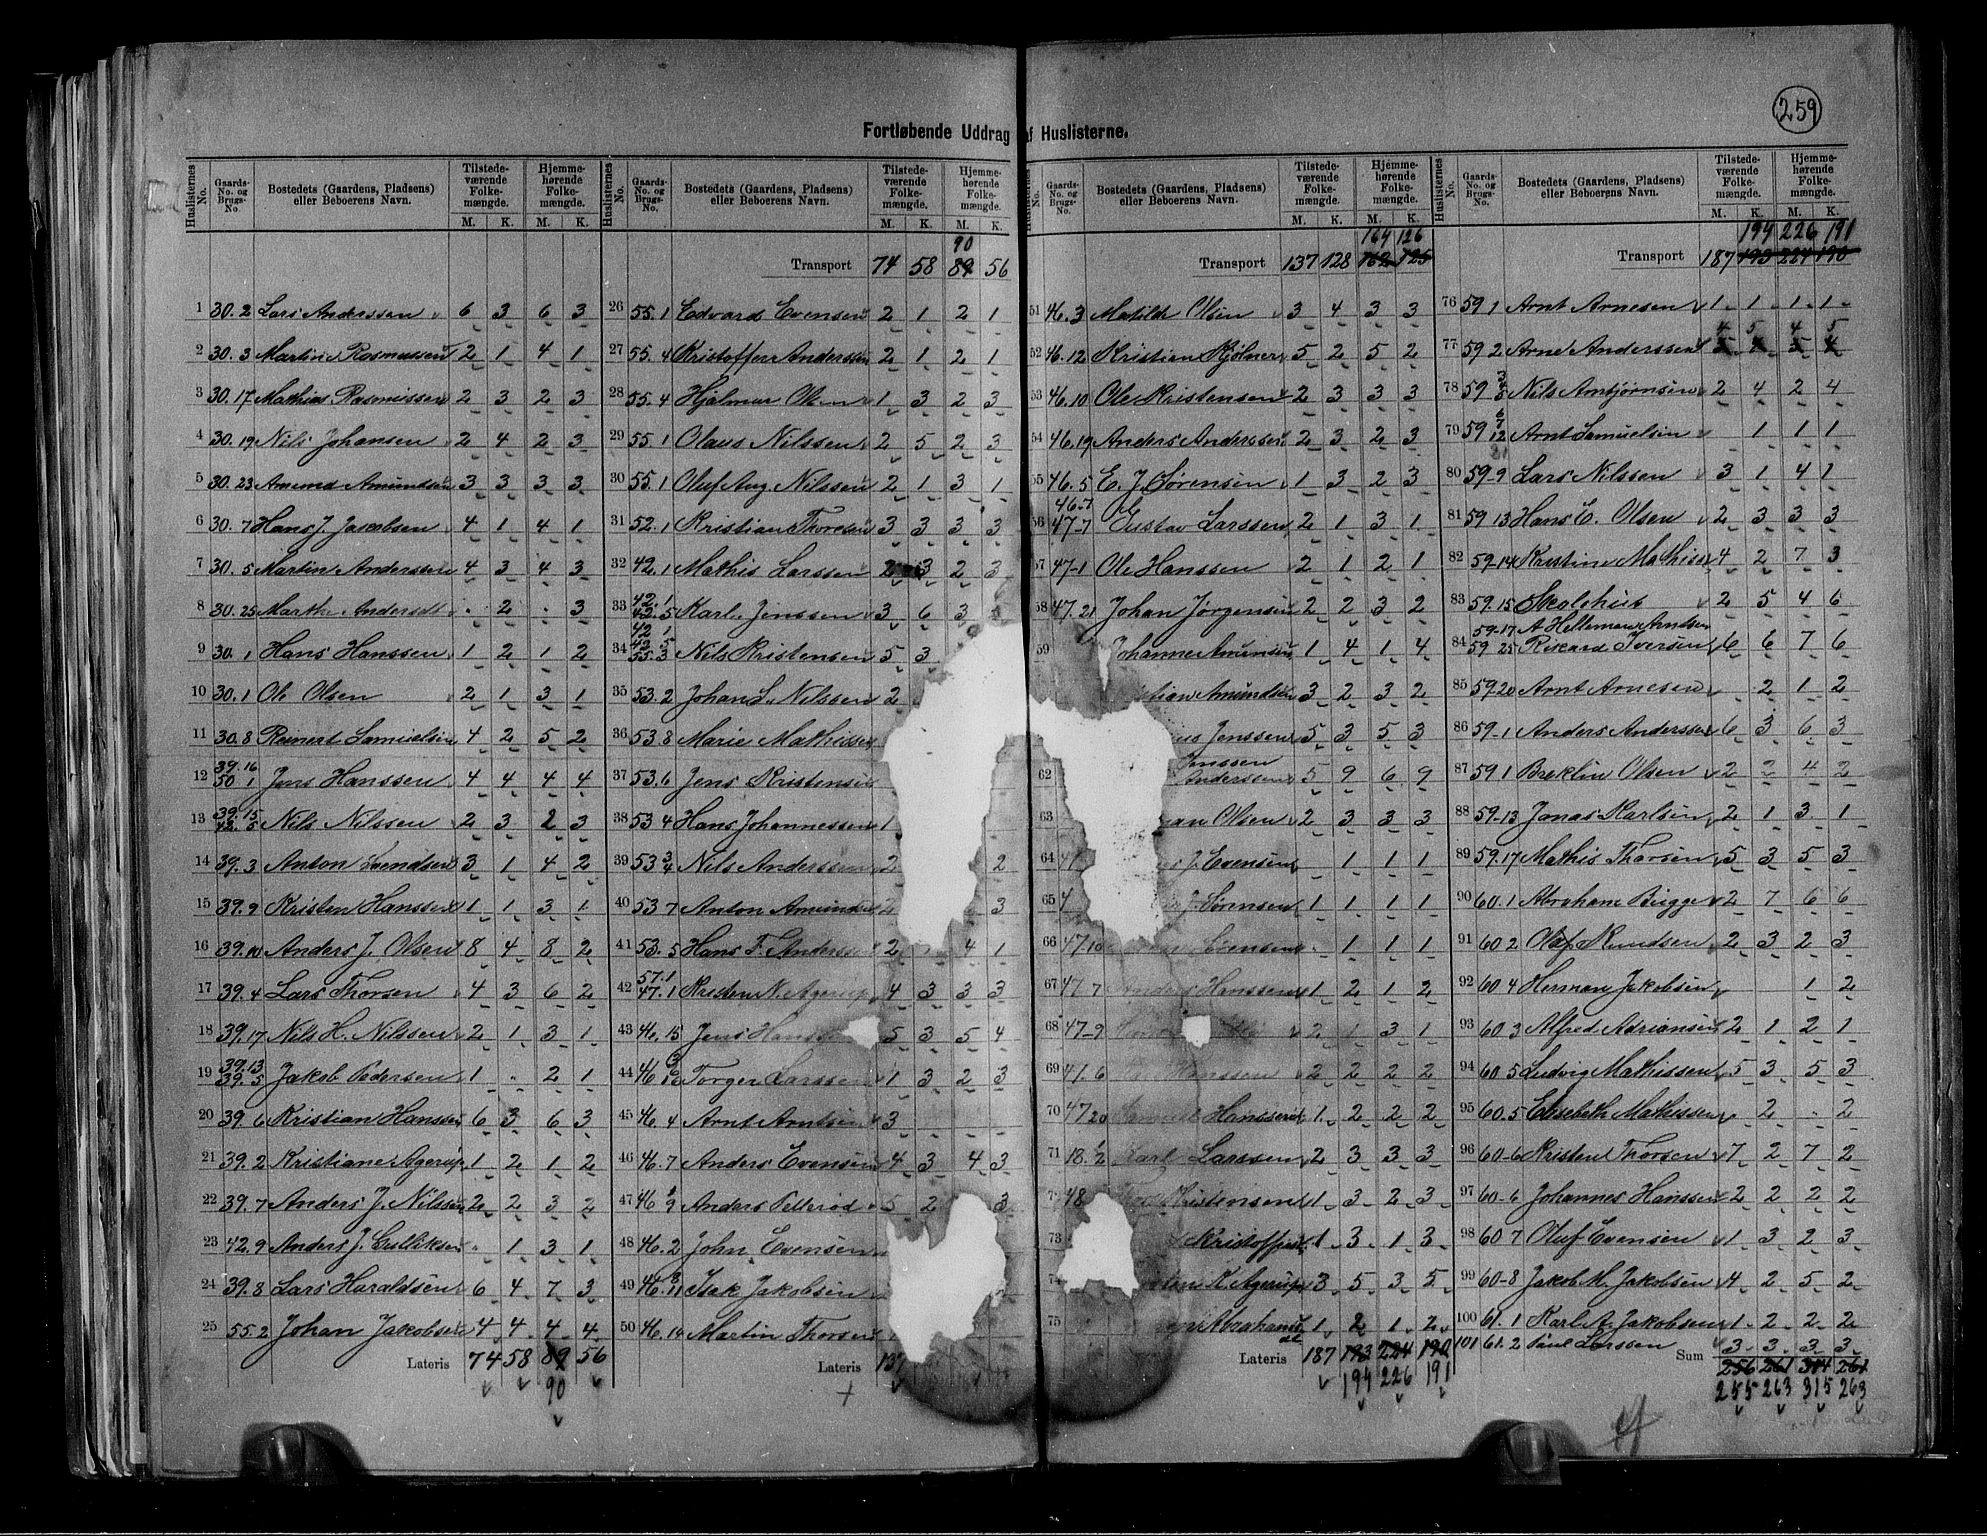 259
Fortløbende Uddrag af Huslisterne.
Huslisternes No. Gaards-No. og Brugs-No. Bostedets (Gaardens, Pladsens) eller Beboerens Navn. Tilstede-værende Folke-mængde. M. K. Hjemme-hørende Folke-mængde. M. K.
1 30.2 Lars Anderssen 6 3 6 3
2 30.3 Martin Rasmussen 2 1 4 1
3 30.17 Mathias Rasmussen 2 3 2 3
4 30.19 Nils Johansen 2 4 2 3
5 30.23 Amund Amundsen 3 3 3 3
6 30.7 Hans J. Jakobsen 4 1 4 1
7 30.5 Martin Anderssen 4 3 4 3
8 30.25 Marthe Andersdt. - 2 - 3
9 30.1 Hans Hanssen 1 2 1 2
10 30.1 Ole Olsen 2 1 3 1
11 30.8 Reinert Samuelsen 4 2 5 2
12 39.16 50 1 Jens Hanssen 4 4 4 4
13 39.15 42.5 Nils Nilssen 2 3 2 3
14 39.3 Anton Svendsen 3 1 4 2
15 39.9 Kristen Hanssen 1 1 3 1
16 39.10 Anders J. Olsen 8 4 8 2
17 39.4 Lars Thorsen 4 3 6 2
18 39.17 Nils H. Nilssen 2 1 3 1
19 39.13 39.5 Jakob Pedersen 1 - 2 1
20 39.6 Kristian Hanssen 6 3 6 3
21 39.2 Kristiane Agerup 1 2 1 2
22 39.7 Anders J. Nilssen 2 2 3 2
23 42.9 Anders J. - 1 3 1
24 39.8 Lars Haraldsen 6 4 7 3
25 55.2 Johan Jakobsen 4 4 4 4
Lateris 74 58 89 56
90
Huslisternes No. Gaards-No. og Brugs-No. Bostedets (Gaardens, Pladsens) eller Beboerens Navn. Tilstede-værende Folke-mængde. M. K. Hjemme-hørende Folke-mængde. M. K.
90
Transport 74 58 89 56
26 55.1 Edvard Evensen 2 1 2 1
27 55.4 Kristoffer Anderssen 2 1 2 1
28 55.4 Hjalmar Olsen 1 3 2 3
29 55.1 Olaus Nilssen 2 5 2 3
30 55.1 Oluf Aug. Nilssen 2 1 3 1
31 52.1 Kristian Thoresen 3 3 3 3
32 42.1 Mathis Larssen 2 3 2 3
33 42.1 42.5 Karl Jenssen 3 6 3
34 42 1 42 5 55.3 Nils Kristensen 5 3
35 53.2 Johan L. Nilssen 2
36 53.8 Marie Mathissen
37 53.6 Jens Kristensen
38 53 4 Hans Johannessen 1
39 53 3/4 Nils Anderssen 2 2
40 53 7 Anton Amundsen 2 3
41 53.5 Hans F. Anderssen 2 4 1
42 57.1 47.1 Kristen N. Agerup 4 3 3 3
43 46.15 Jens Hanssen 5 3 5 4
44 46 Torger Larssen 1 3 2 3
45 46.4 Arnt Arntsen 3
46 46.7 Anders Evensen 4 3 4 3
47 46 9 Anders Pellerød 5 2 3
48 46.2 John Evensen
49 46. 11 Isak Jakobsen
50 46.14 Martin Thorsen
Lateris 137
Huslisternes No. Gaards-No. og Brugs-No. Bostedets (Gaardens, Pladsens) eller Beboerens Navn. Tilstede-værende Folke-mængde. M. K. Hjemme-hørende Folke-mængde. M. K.
164 126
Transport 137 128 162 125
51 46.3 Matilde Olsen 3 4 3 3
52 46.12 Kristian Kjølner 5 2 5 2
53 46.10 Ole Kristensen 2 3 3 3
54 46.19 Anders Anderssen 2 3 2 3
55 46.5 E. J. Sørensen 1 3 2 3
56 46-7 47-7 Gustav Larssen 2 1 3 1
57 47-1 Ole Hanssen 2 1 2 1
58 47.21 Johan Jørgensen 2 2 3 2
59 Johanne Amundsen 1 4 1 4
Amundsen 3 2 3 2
Jenssen 5 3 5 3
62 Jenssen Anderssen 5 9 6 9
63 Olsen 2 3 3 3
64 J. Evensen 1 1 1
65 J. Sørensen 1 1 1 1
66 47.10 Sørensen - 1 1 1
67 47 7 Anders Hanssen 1 2 1 2
68 47-9 2 1 3 1
69 47.6 Hanssen 2 2 2 2
70 47 20 Hanssen 1 2 2 2
71 18. 1/2 Karl Larssen 2 3 3 3
72 48 Kristensen 1 3 2 3
73 Kristoffersen 1 3 1 3
74 K. Agerup 3 5 3 5
75 Abrahamsen 1 2 1 2
Lateris 187 193 224 190
194 226 191
Huslisternes No. Gaards-No. og Brugs-No. Bostedets (Gaardens, Pladsens) eller Beboerens Navn. Tilstede-værende Folke-mængde. M. K. Hjemme-hørende Folke-mængde. M. K.
194 226 191
Transport 187 193 224 190
76 59 1 Arnt Arnesen 1 1 1 1
4 5 4 5
77 59 2 Arne Anderssen 3 4 3 4
78 59 Nils Arnbjørnsen 2 4 2 4
79 59 12 Arnt Samuelsen 1 1 1
80 59-9 Lars Nilssen 3 1 4 1
81 59 13 Hans E. Olsen 2 3 3 3
82 59-14 Kristine Mathisen 4 2 7 3
83 59.15 Skolehus 2 5 4 6
59-17 A Arndsen
84 59 25 Rikard Iversen 6 6 7 6
85 59.20 Arnt Arnesen 2 1 2
86 59-1 Anders Anderssen 6 3 6 3
87 59 1 Breklin Olsen 2 2 4 2
88 59-13 Jonas Karlsen 2 1 3 1
89 59.17 Mathis Thorsen 5 3 5 3
90 60.1 Abraham Bugge 2 7 6 6
91 60 2 Olaf Knudsen 2 3 2 3
92 60 4 Herman Jakobsen 1 2
93 60 3 Alfred Adriansen 2 1 2 1
94 60 5 Ludvig Mathissen 5 3 5 3
95 60.5 Elisebeth Mathissen 2 - 2
96 60-6 Kristen Thorsen 7 2 7 2
97 60-6 Johannes Hanssen 2 2 2 2
98 60 7 Oluf Evensen 1 3 2 3
99 60-8 Jakob M. Jakobsen 4 2 5 2
100 61.1 Karl A. Jakobsen 1 2 2 2
101 61.2 Paul Larssen 3 3 3 3
Sum 256 261 314 261
255 263 315 263